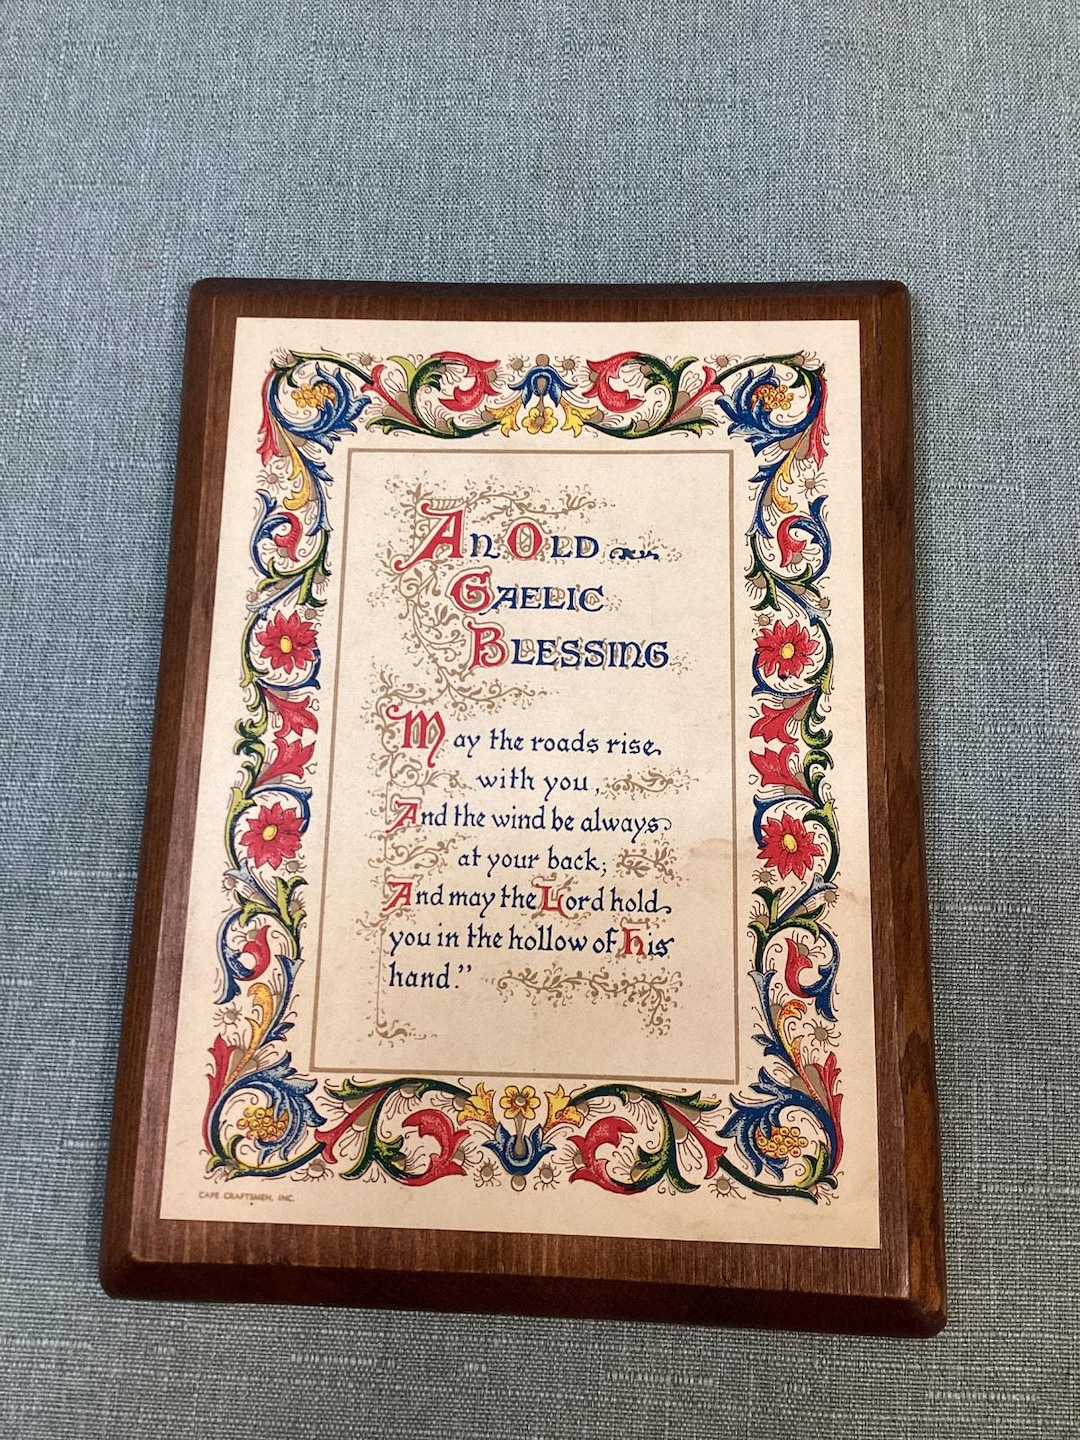 An Old
Gaelic
Blessing
May the roads rise
with you,
And the wind be always
at your back;
And may the Lord hold
you in the hollow of His
hand."
CAPE CRAFTSMEN, INC.